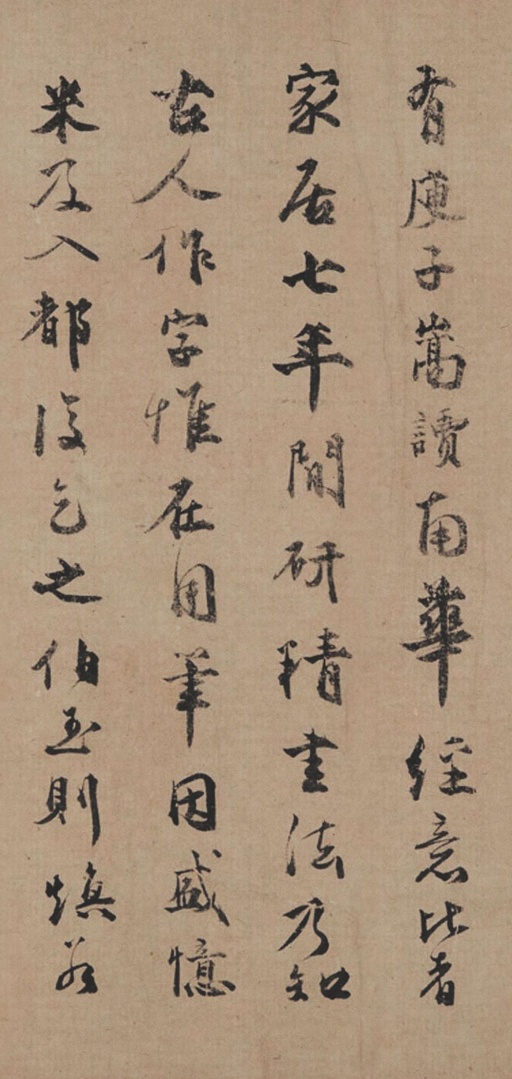 有庾子嵩讀南華經意比者
家居七年間研精書法乃知
古人作字惟在用筆因盛憶
米及入都復乞之伯玉則慎若